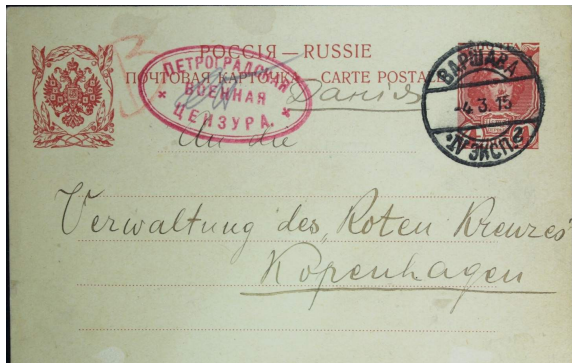 РОССІЯ — RUSSIE
ПОЧТОВАЯ КАРТОЧКА — CARTE POSTALE
ПЕТРОГРАДСКАЯ
ВОЕННАЯ
ЦЕНЗУРА.
Данія
ВАРШАВА
-4.3.15
IV ЭКСП.
An die
Verwaltung des „Roten Kreuzes"
Kopenhagen